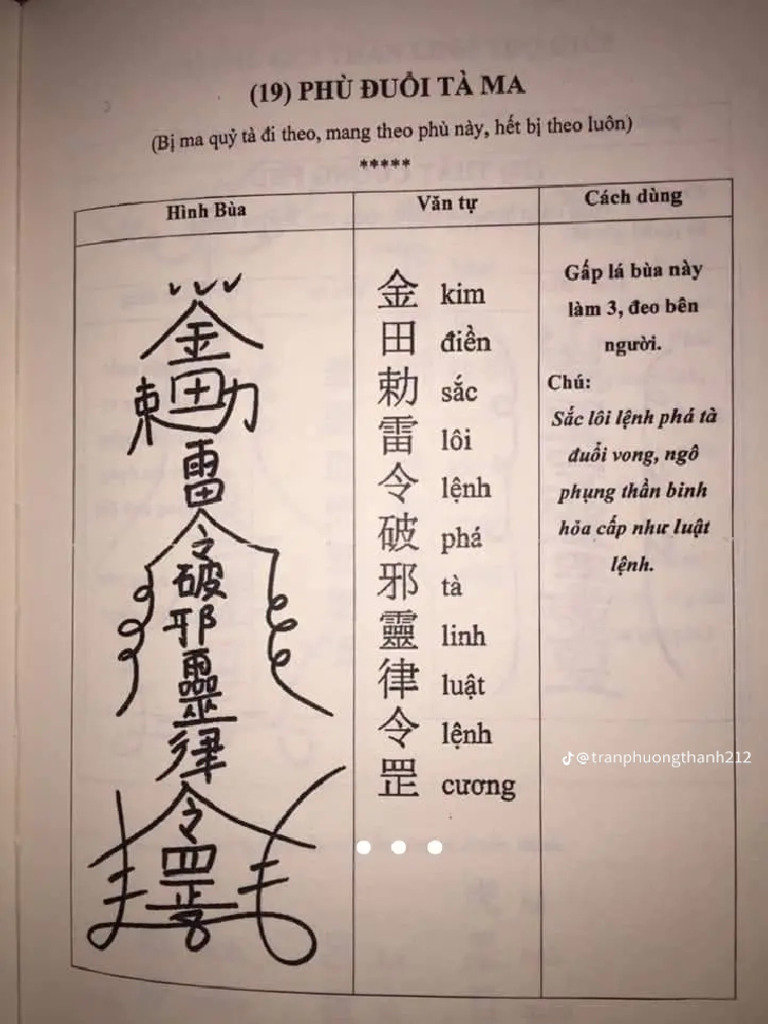 (19) PHÙ ĐUỔI TÀ MA
(Bị ma quỷ tà đi theo, mang theo phù này, hết bị theo luôn)
*****
Hình Bùa
Văn tự
Cách dùng
金
勅田
雷
令
破
邪
靈
律
令
罡
金 kim
田 điền
勅 sắc
雷 lôi
令 lệnh
破 phá
邪 tà
靈 linh
律 luật
令 lệnh
罡 cương
Gấp lá bùa này
làm 3, đeo bên
người.
Chú:
Sắc lôi lệnh phá tà
đuổi vong, ngô
phụng thần binh
hỏa cấp như luật
lệnh.
@tranphuongthanh212